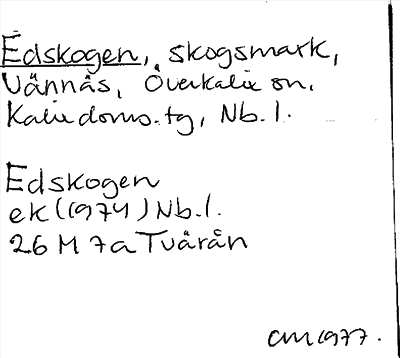 Edskogen, skogsmark,
Vännäs, Överkalix sn.
Kalix doms.tg, Nb.l.
Edskogen
ek (1974) Nb.l.
26 M 7a Tvärån
CM 1977.